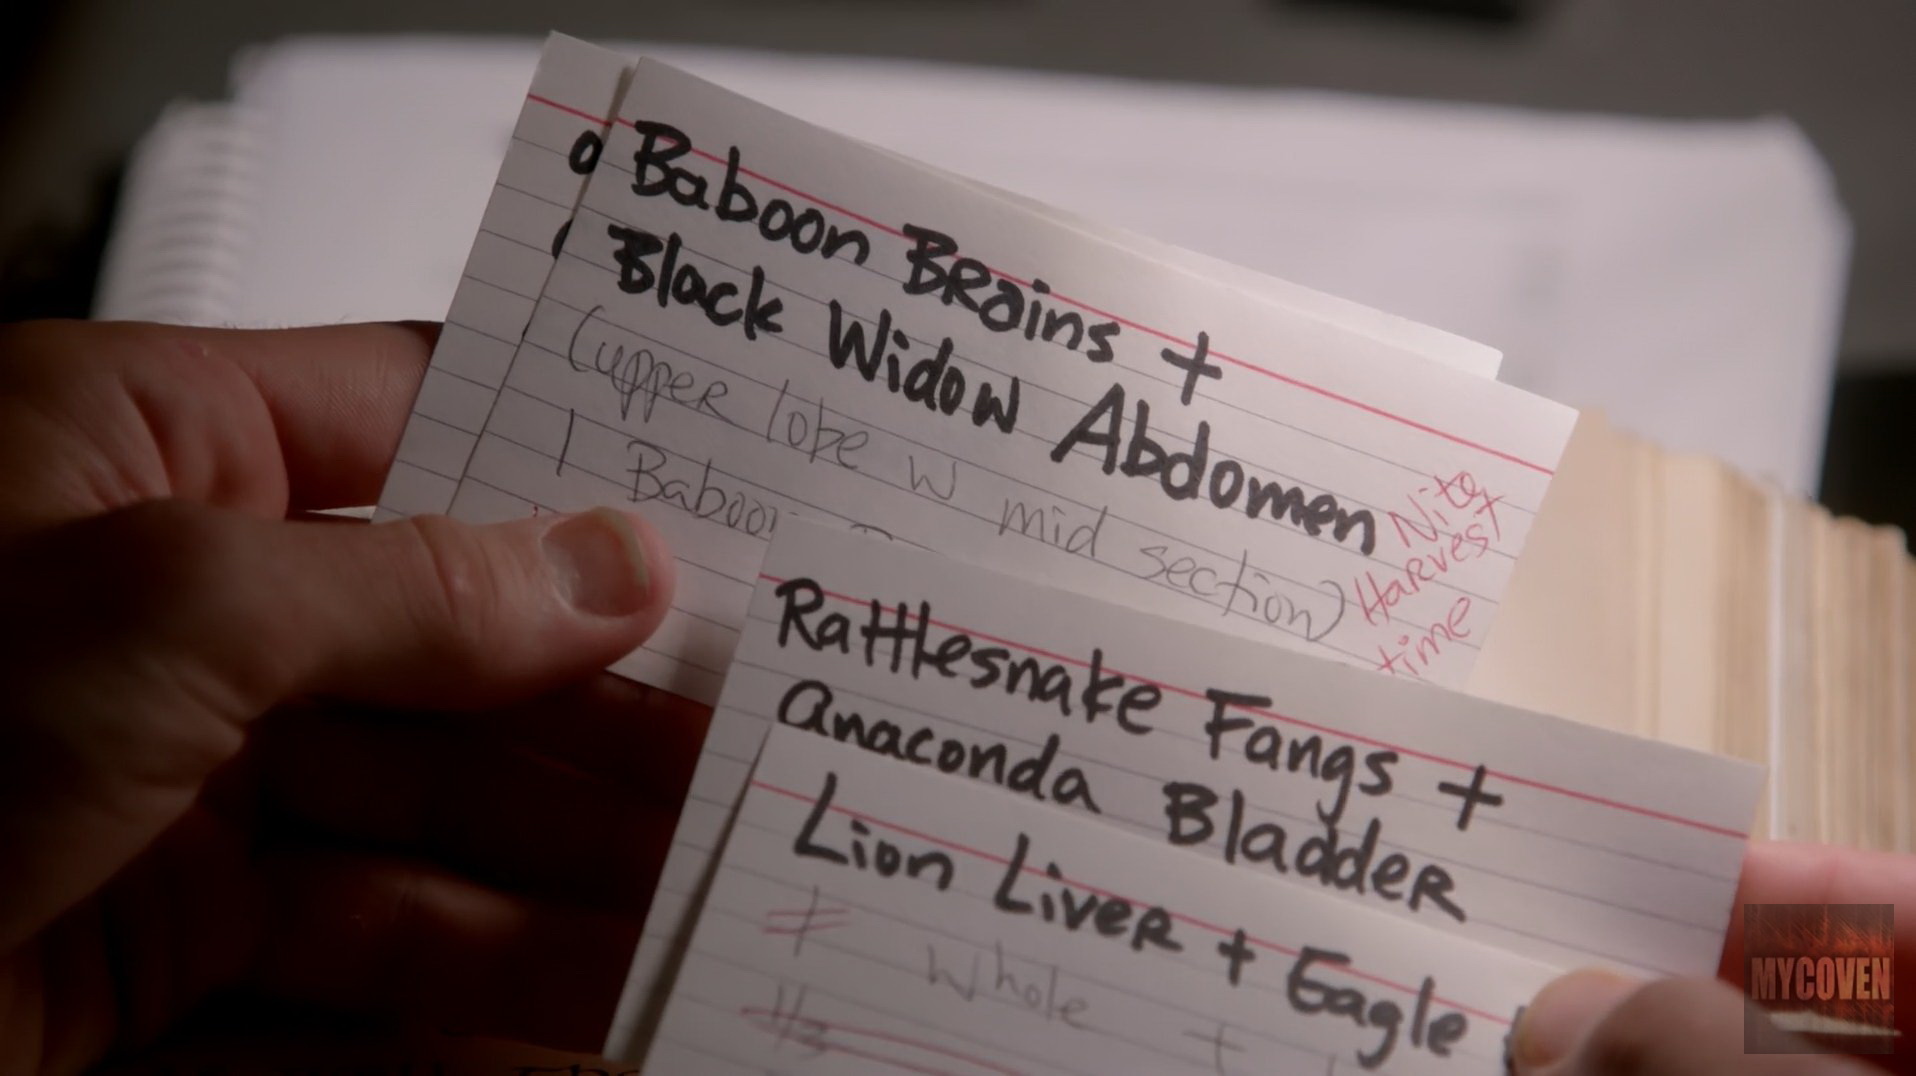 Baboon Brains +
Black Widow Abdomen
(upper lobe w mid section)
1 Baboon
Harvest
time
Rattlesnake Fangs +
Anaconda Bladder
Lion Liver + Eagle
≠ whole +
MYCOVEN